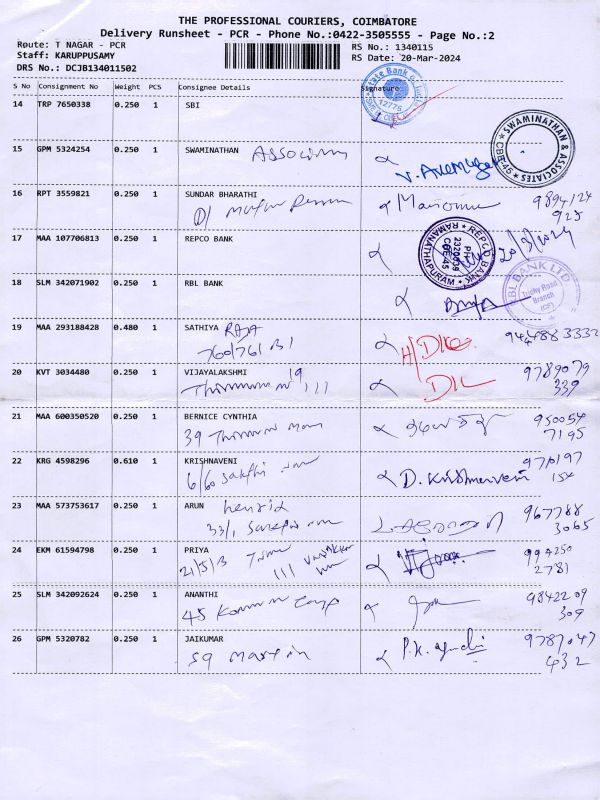 THE PROFESSIONAL COURIERS, COIMBATORE
Delivery Runsheet - PCR - Phone No.:0422-3505555 - Page No.:2
Route: T NAGAR - PCR
RS No.: 1340115
Staff: KARUPPUSAMY
RS Date: 20-Mar-2024
DRS No.: DCJB134011502
S No Consignment No Weight PCS Consignee Details Signature
14 TRP 7650338 0.250 1 SBI
State Bank of India
12775
15 GPM 5324254 0.250 1 SWAMINATHAN
SWAMINATHAN & ASSOCIATES
CBE-45
16 RPT 3559821 0.250 1 SUNDAR BHARATHI
9894124
925
17 MAA 107706813 0.250 1 REPCO BANK
REPCO BANK
PH:
2320039
CBE-45
RAMANATHAPURAM
20/3/2024
18 SLM 342071902 0.250 1 RBL BANK
RBL BANK LTD
Trichy Road
Branch
(CBE)
19 MAA 293188428 0.480 1 SATHIYA RAJA
760/761 B1
9444883332
20 KVT 3034480 0.250 1 VIJAYALAKSHMI
9789079
339
21 MAA 600350520 0.250 1 BERNICE CYNTHIA
39
950054
7195
22 KRG 4598296 0.610 1 KRISHNAVENI
6/60 Sakthi
D. Krishnaveni
154
23 MAA 573753617 0.250 1 ARUN
33/1
967788
3065
24 EKM 61594798 0.250 1 PRIYA
21/5/B
994250
2781
25 SLM 342092624 0.250 1 ANANTHI
45
9842209
309
26 GPM 5320782 0.250 1 JAIKUMAR
59
9787047
432